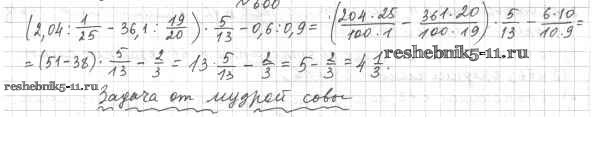 №600
(2,04 : 1/25 - 36,1 : 19/20) · 5/13 - 0,6 : 0,9 = (204·25/100·1 - 361·20/100·19) · 5/13 - 6·10/10·9 =
= (51-38) · 5/13 - 2/3 = 13 · 5/13 - 2/3 = 5 - 2/3 = 4 1/3.
reshebnik5-11.ru
reshebnik5-11.ru
Задача от мудрой совы